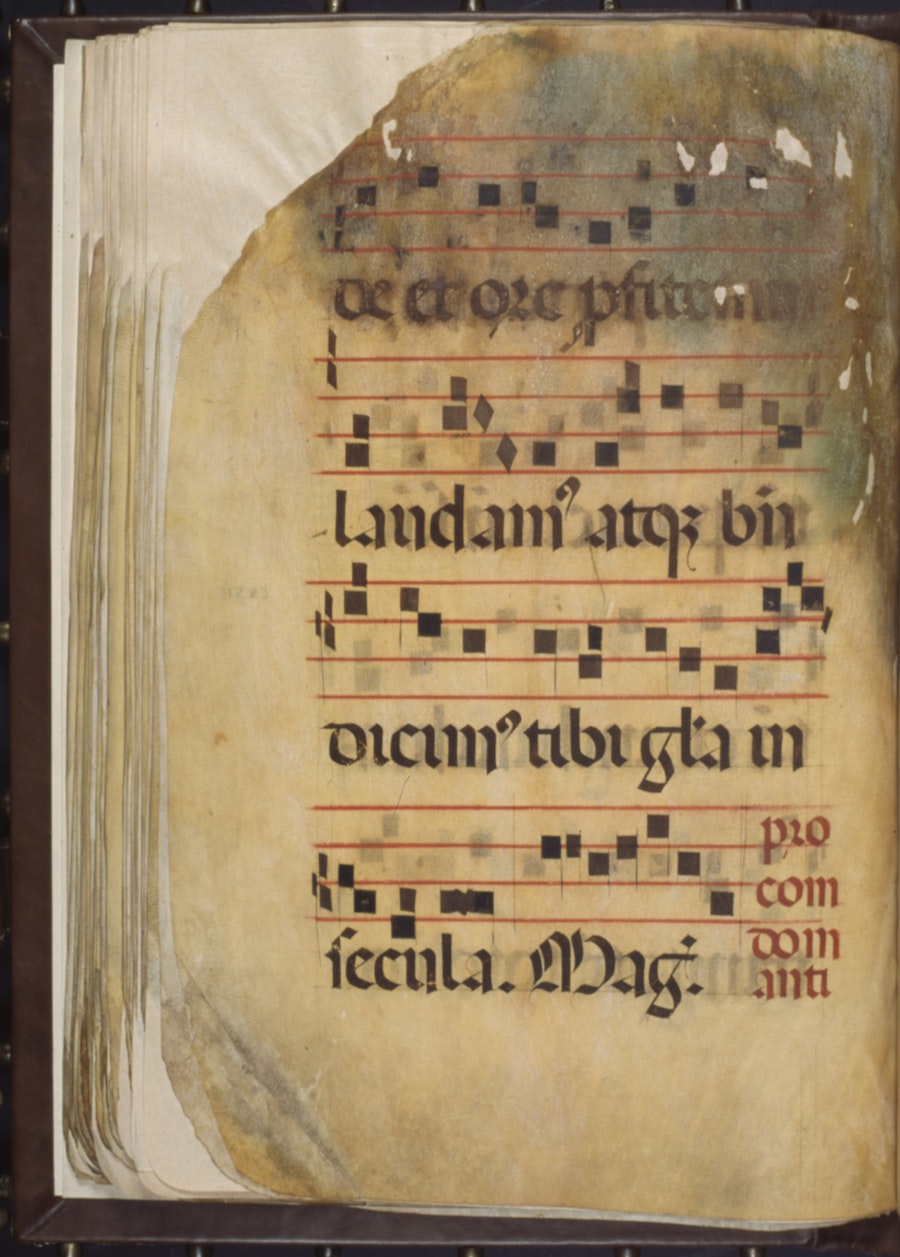 de et ore pfitemur
laudam⁹ atqꝫ bn̄
dicim⁹ tibi gl̄a in
secula. Maḡ.
pro
com
dom
anti